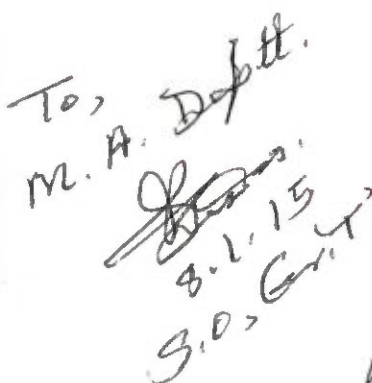 To,
M. A. Deptt.
8.1.15
S.O, G.I.T